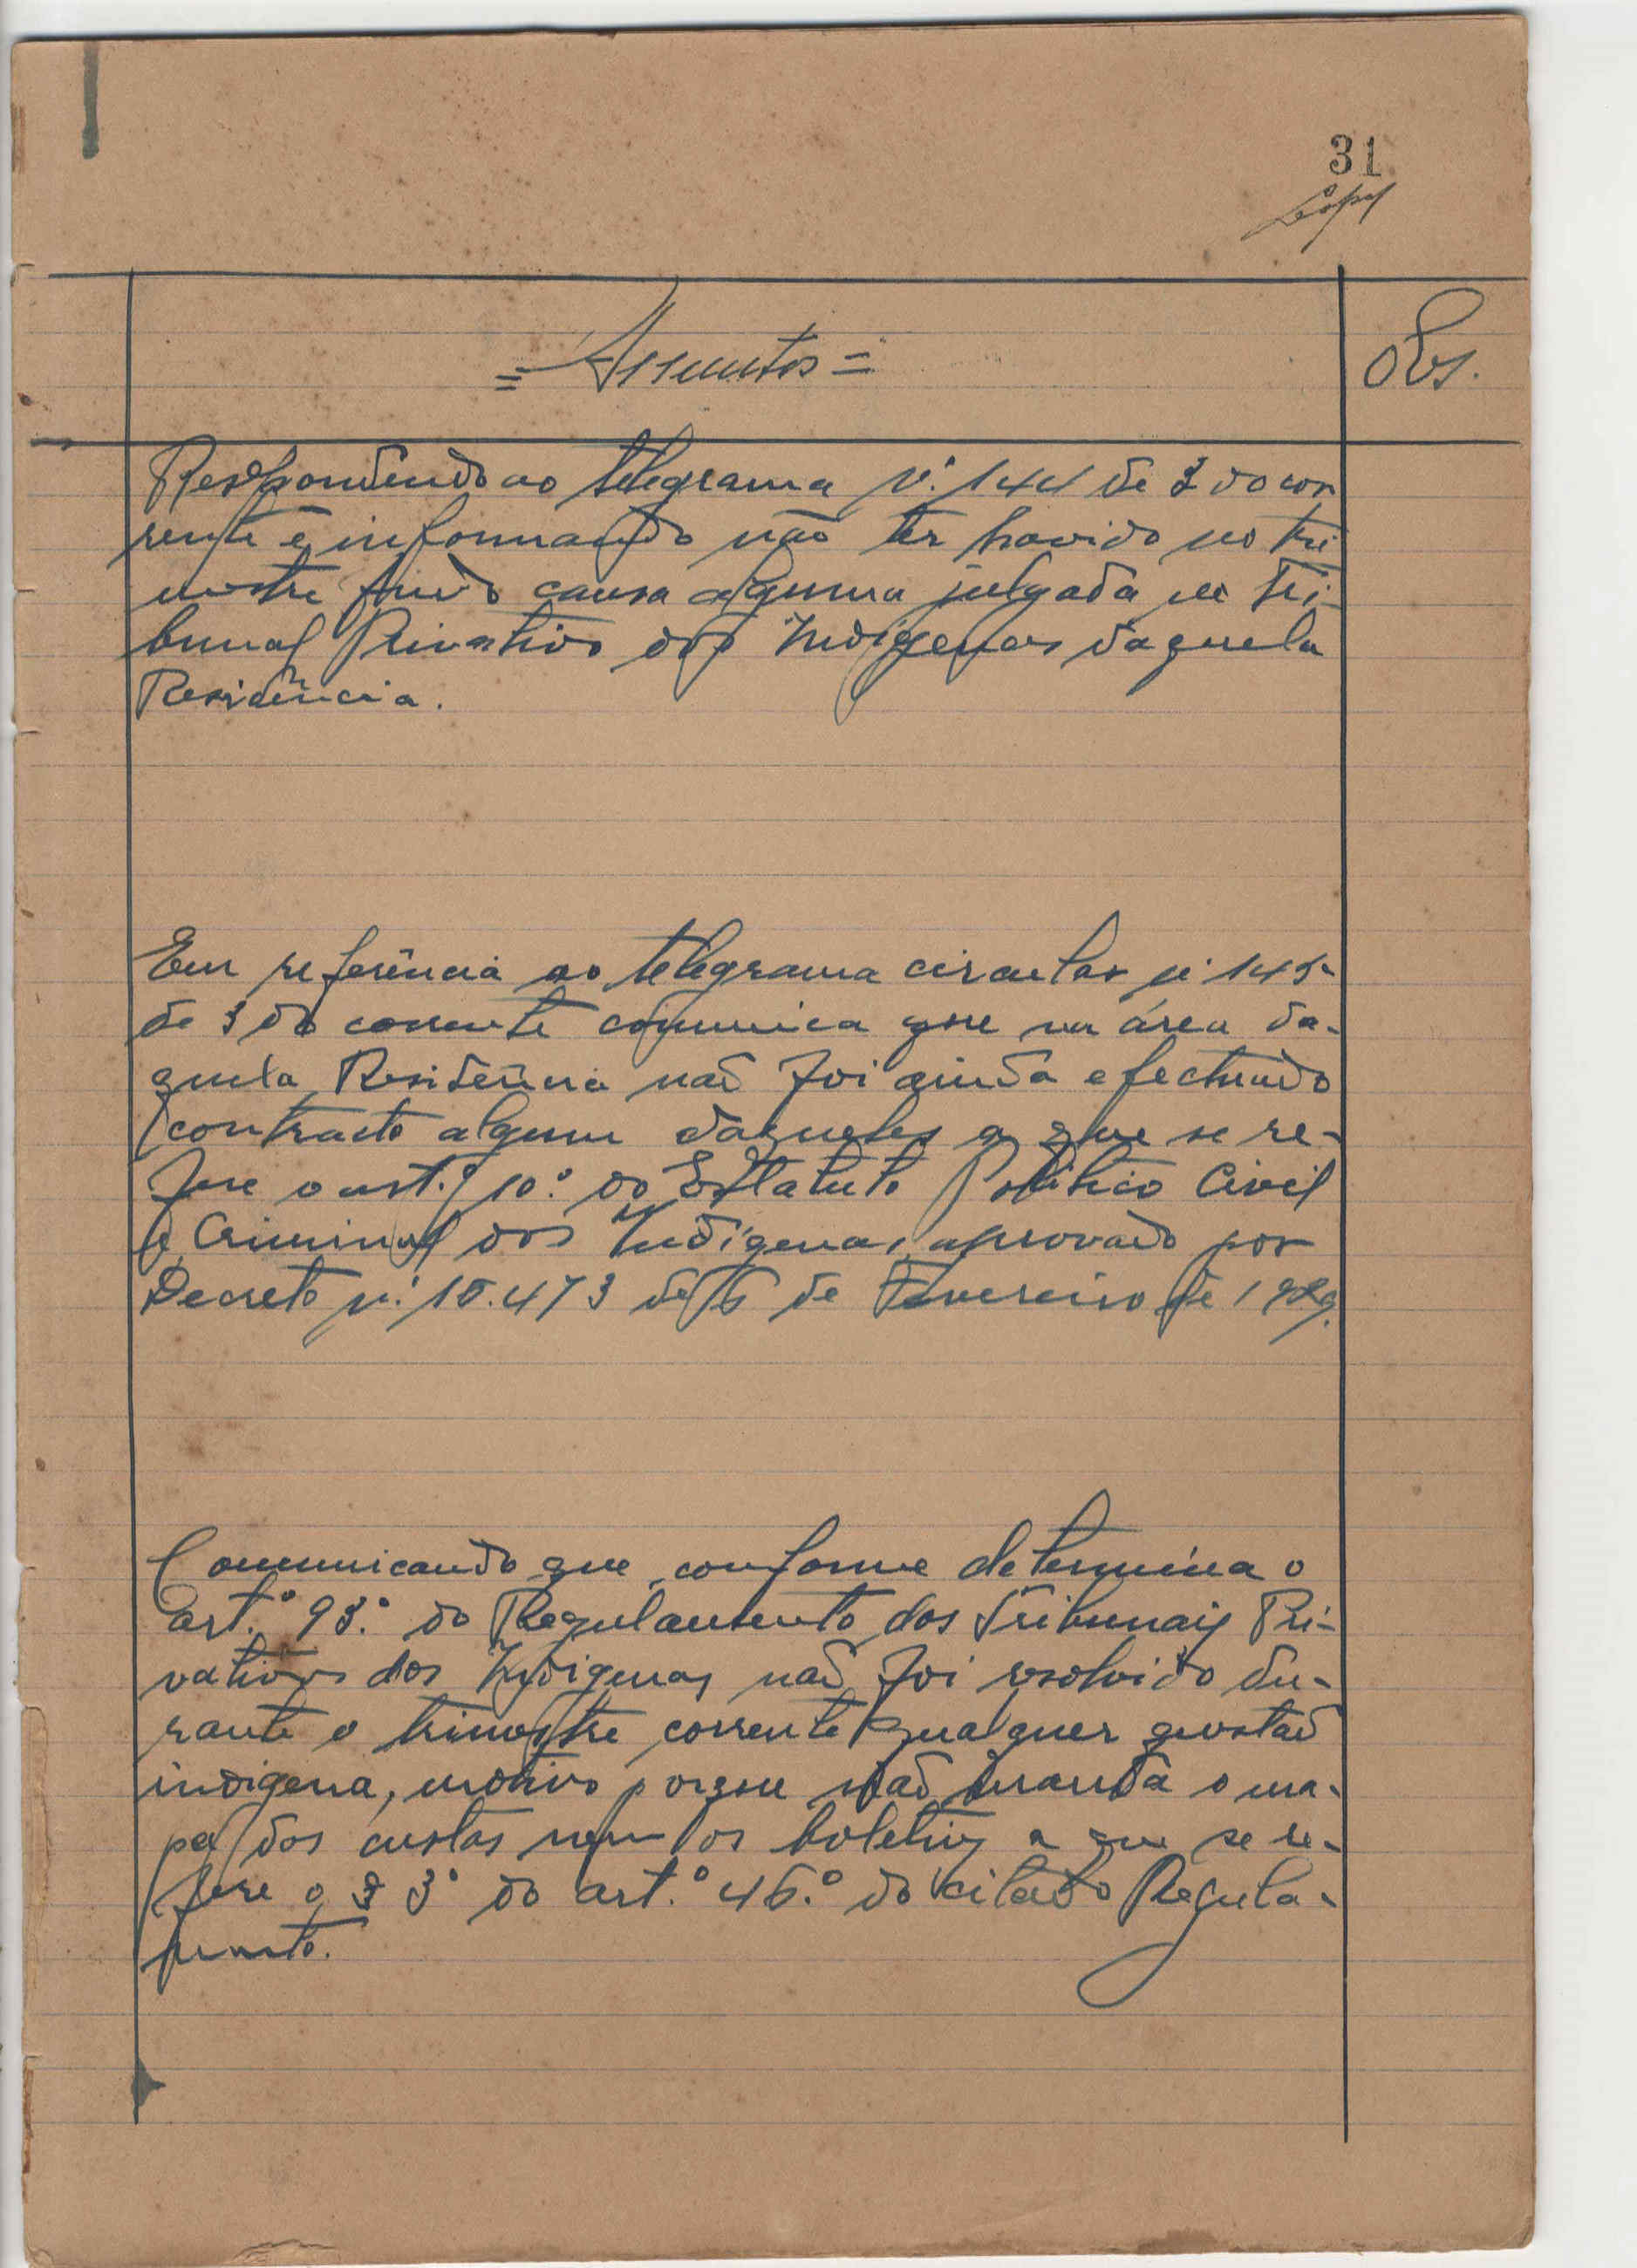 31
= Assuntos =
Obs.
Respondendo ao telegrama nº 144 de 3 do cor
rente e informando não ter havido no tri
mestre findo causa alguma julgada no Tri-
bunal Privativo dos Indigenas daquela
Residência.
Em referência ao telegrama circular nº 145
de 3 do corrente comunica que na área da-
quela Residência não foi ainda efectuado
contracto algum daqueles a que se re-
fere o art.º 10.º do Estatuto Politico Civil
e Criminal dos Indígenas, aprovado por
Decreto nº 10.473 de 6 de Fevereiro de 1929.
Comunicando que, conforme determina o
art.º 93.º do Regulamento dos Tribunais Pri-
vativos dos Indigenas não foi resolvido du-
rante o trimestre corrente qualquer questão
indigena, motivo porque não manda o ma-
pa das custas nem os boletins a que se re-
fere o § 3º do art.º 46.º do citado Regula-
mento.